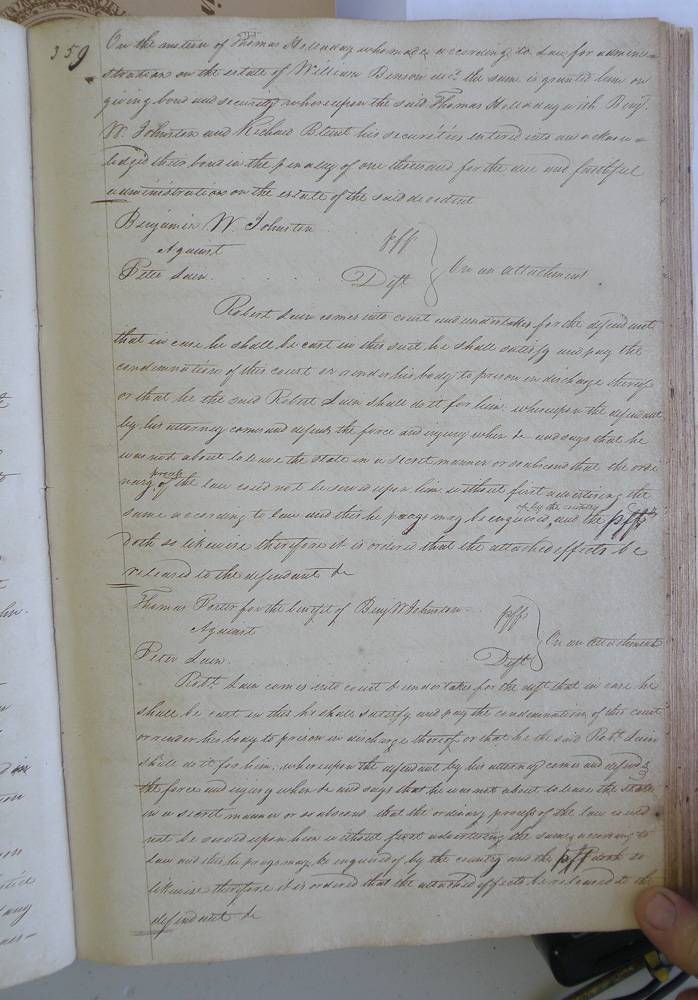 359
On the motion of Thomas Holladay who made according to Law for admini=
stration on the estate of William Benson decd. the same is granted him on
giving bond and security whereupon the said Thomas Holladay with Benj.
W. Johnston and Richard Blunt his securities entered into and acknow=
ledged their bond in the penalty of one thousand for the due and faithful
administration on the estate of the said decedent
Benjamin W Johnston pff
Against On an attachment
Peter Luin Deft
Robert Luin comes into court and undertakes for the defendant
that in case he shall be cast in this suit he shall satisfy and pay the
condemnation of this court or render his body to prison in discharge thereof
or that he the said Robert Luin shall do it for him, whereupon the defendant
by his attorney comes and defends the force and injury when &c and says that he
was not about to leave the state in a secret manner or so abscond that the ordi
nary process of the law could not be served upon him without first advertising the
same according to law and this he prays may be enquired of by the country and the pff
doth so likewise therefore it is ordered that the attached effects be
released to the defendant &c
Thomas Porter for the benefit of Benj W Johnston pff
Against On an attachment
Peter Luin Deft
Robt. Luin comes into court & undertakes for the deft that in case he
shall be cast in this he shall satisfy and pay the condemnation of this court
or render his body to prison in discharge thereof or that he the said Robt. Luin
shall do it for him, whereupon the defendant by his attorney comes and defends
the force and injury when &c and says that he was not about to leave the state
in a secret manner or so abscond that the ordinary process of the law could
not be served upon him without first advertising the same according to
Law and this he prays may be enquired of by the country and the pff doth so
likewise therefore it is ordered that the attached effects be released to the
defendant &c